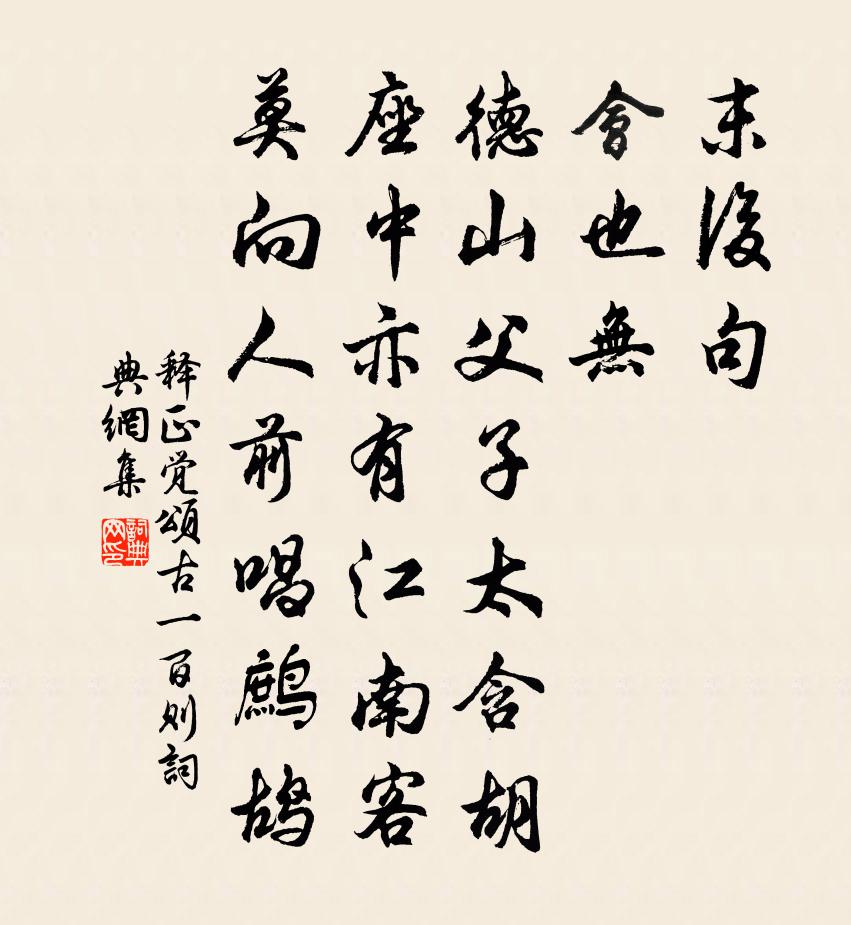 末後句
會也無
德山父子太含胡
座中亦有江南客
莫向人前唱鷓鴣
释正觉頌古一百则詞
典網集
詞典
网印